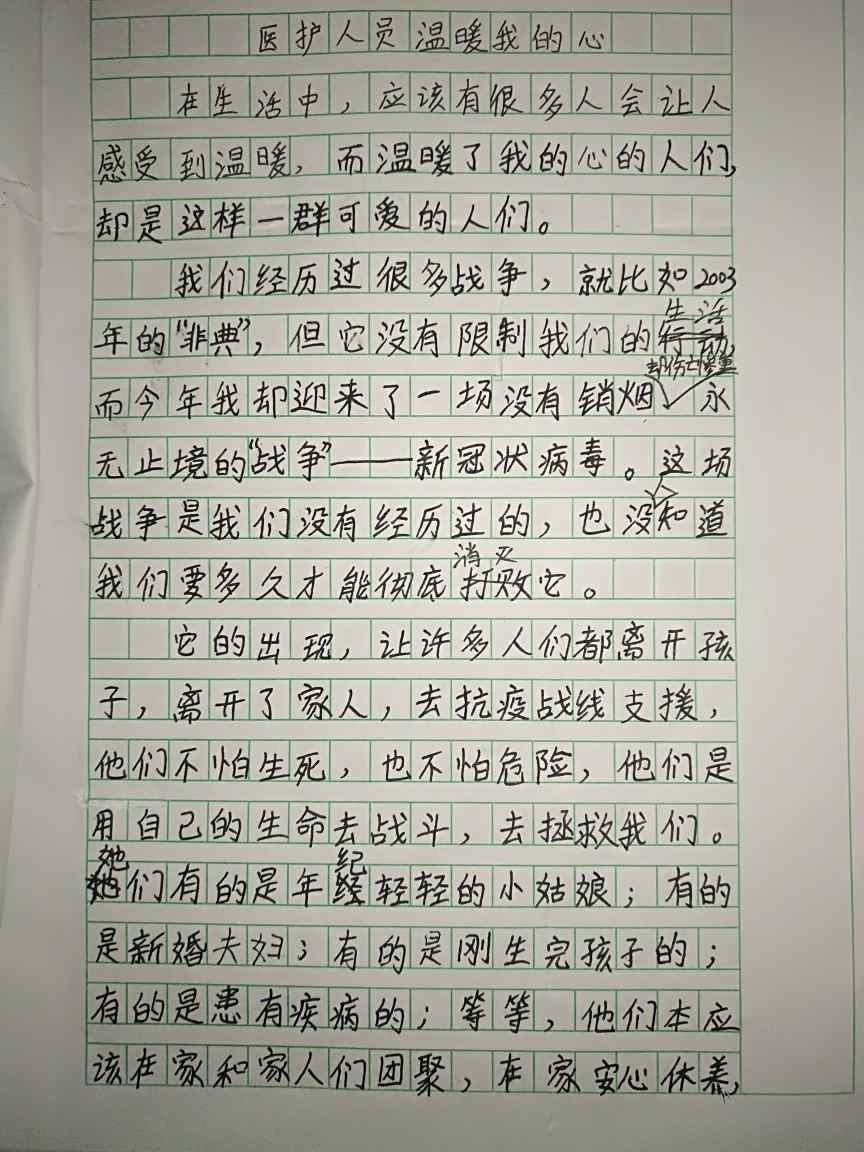 医护人员温暖我的心
在生活中，应该有很多人会让人
感受到温暖，而温暖了我的心的人们，
却是这样一群可爱的人们。
我们经历过很多战争，就比如2003
生活
年的“非典”，但它没有限制我们的行动，
却伤亡惨重
而今年我却迎来了一场没有销烟永
无止境的“战争”——新冠状病毒。这场
战争是我们没有经历过的，也没知道
消灭
我们要多久才能彻底打败它。
它的出现，让许多人们都离开孩
子，离开了家人，去抗疫战线支援，
他们不怕生死，也不怕危险，他们是
用自己的生命去战斗，去拯救我们。
她 纪
她们有的是年轻轻的小姑娘；有的
是新婚夫妇；有的是刚生完孩子的；
有的是患有疾病的；等等，他们本应
该在家和家人们团聚，在家安心休养，